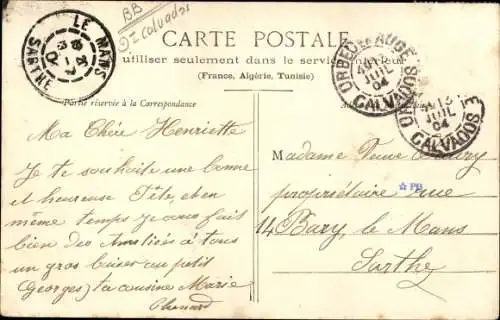 BB
= Calvados
CARTE POSTALE
utiliser seulement dans le service intérieur
(France, Algérie, Tunisie)
Partie réservée à la Correspondance
LE MANS
SARTHE
ORBEC EN AUGE
JUIL
04
CALVADOS
13
JUIL
04
CALVADOS
Ma Chère Henriette
Je te souhaite une bonne
et heureuse Fête, et en
même temps je vous fais
bien des Amitiés à tous
un gros baiser au petit
Georges) ta cousine Marie
Madame Veuve
propriétaire rue
14 Bary, le Mans
Sarthe
☆ PB